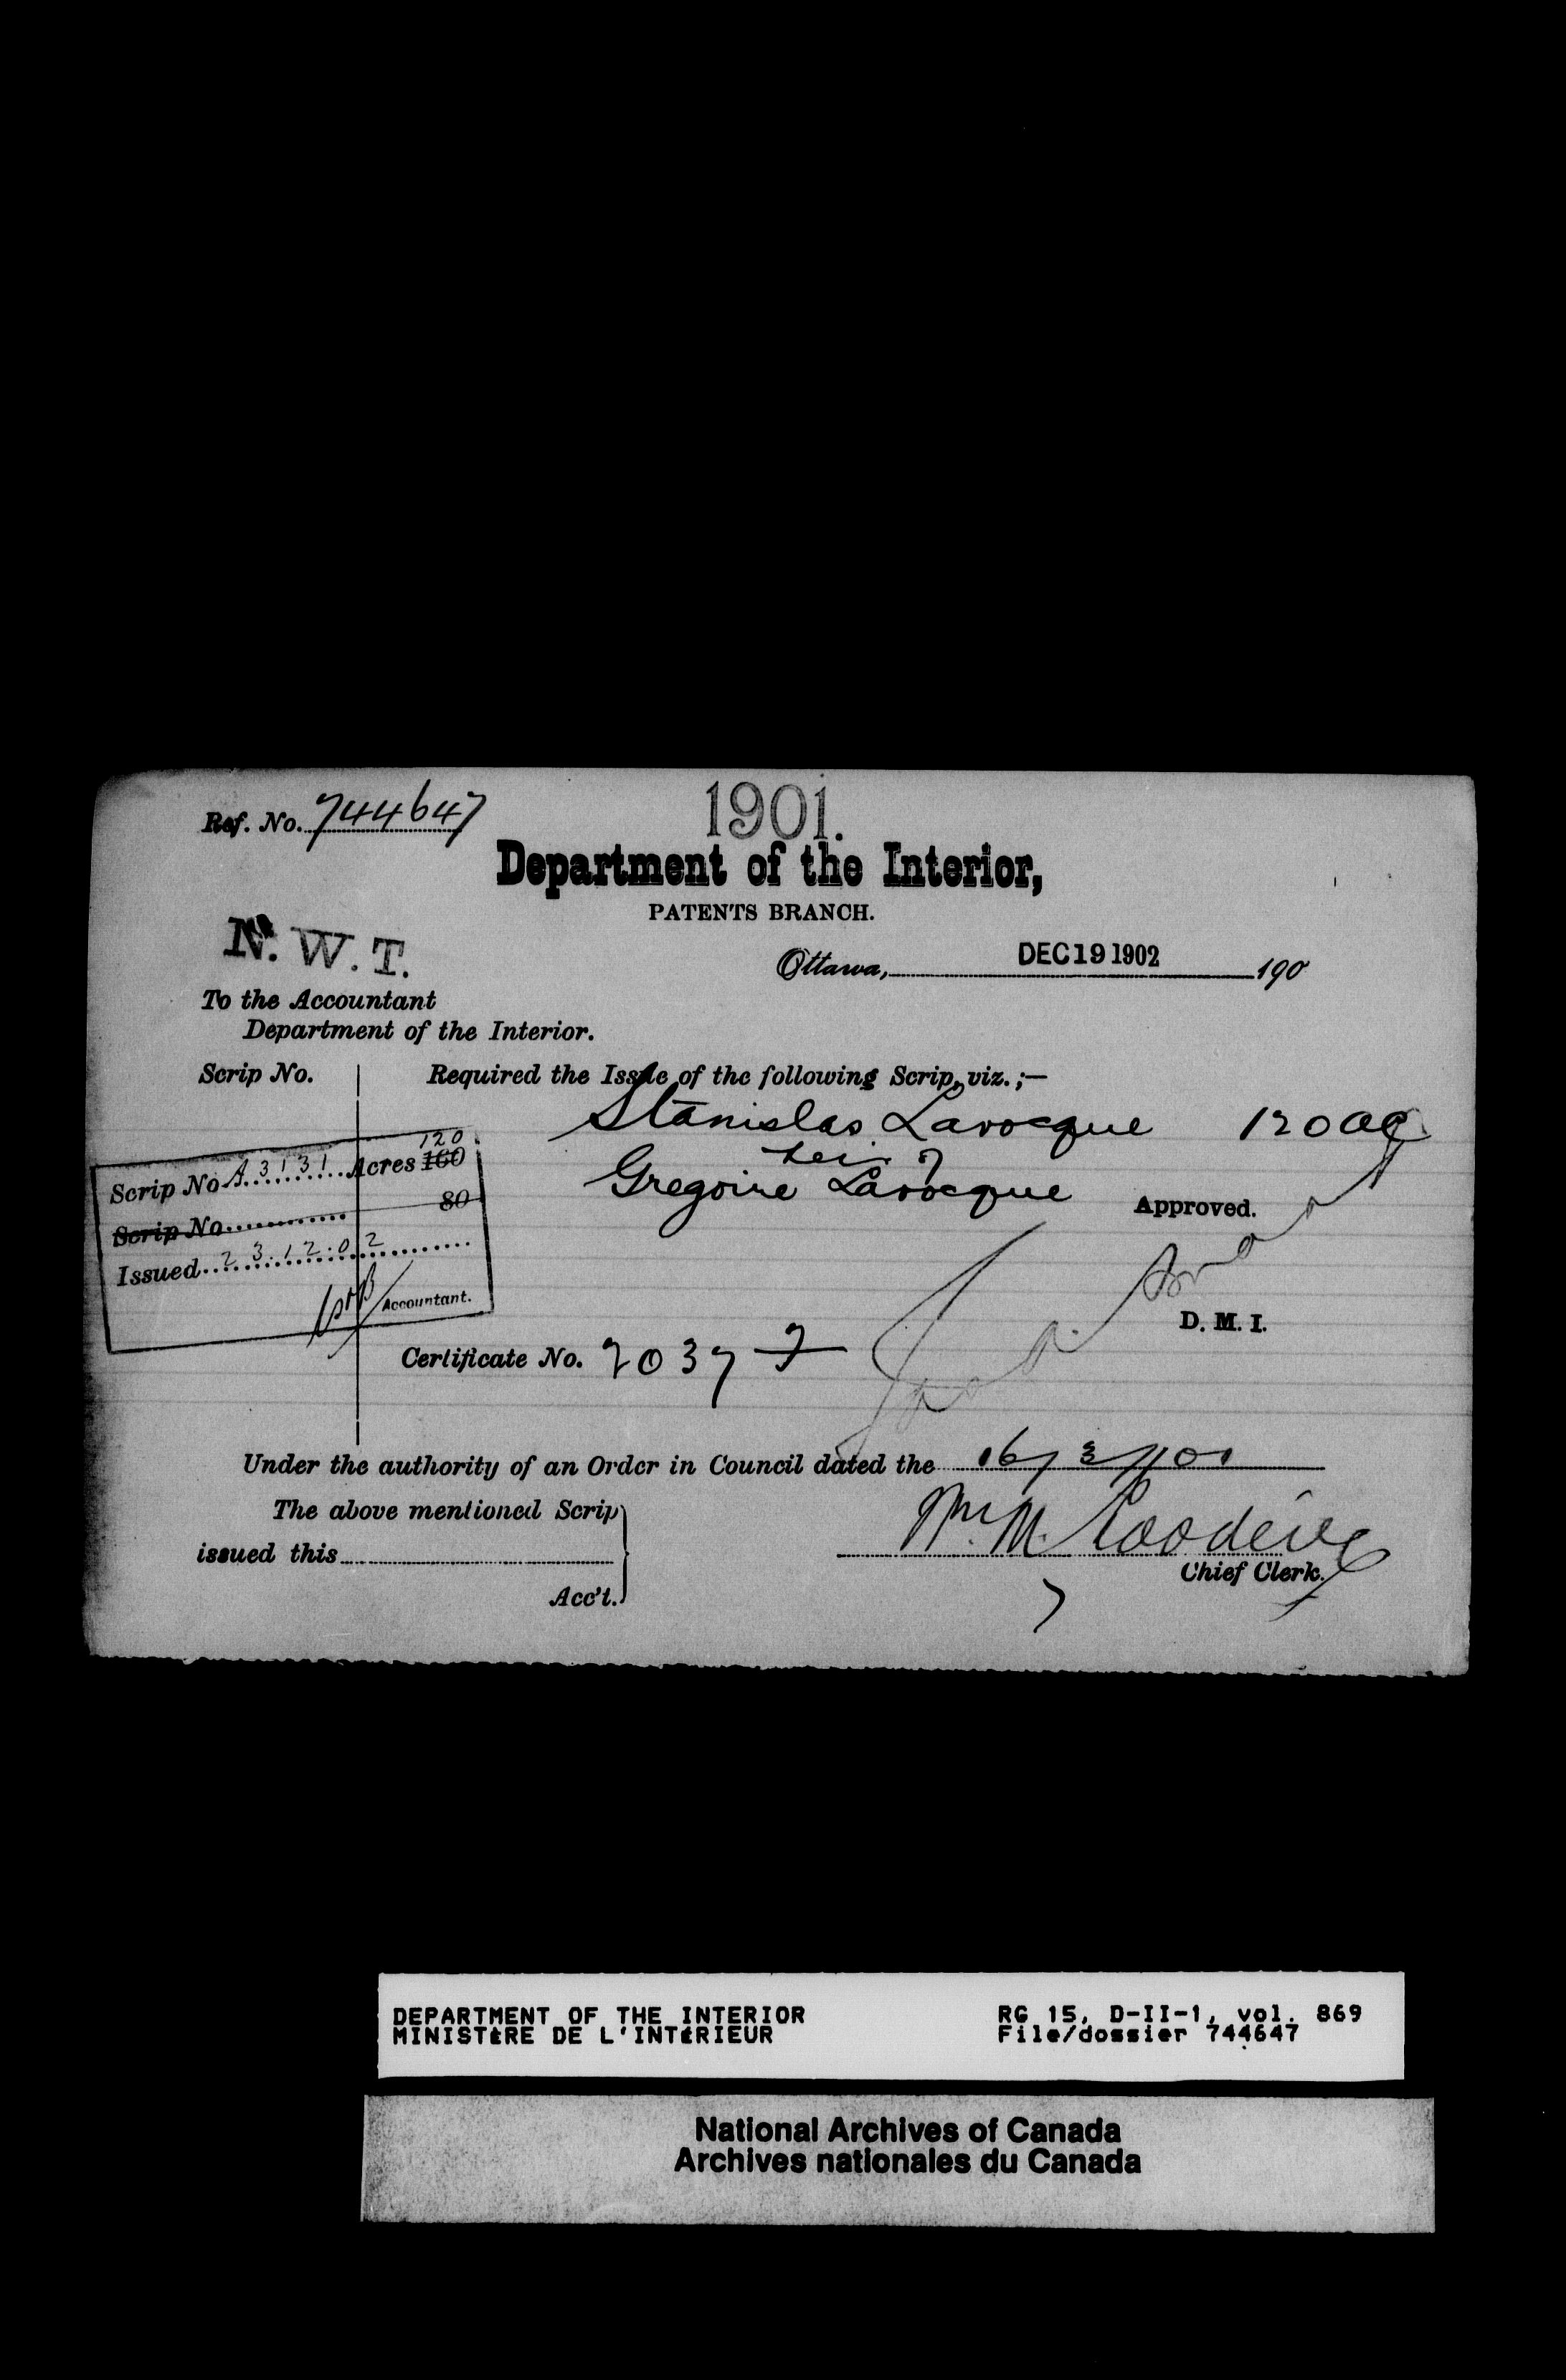 Ref. No. 744647
1901.
Department of the Interior,
PATENTS BRANCH.
N. W. T.
Ottawa, DEC 19 1902 190
To the Accountant
Department of the Interior.
Scrip No.
Required the Issue of the following Scrip, viz.;—
Stanislas Larocque 120 ac
heir of
Gregoire Larocque
Approved.
120
Scrip No A3131 Acres 160
Scrip No 80
Issued 23.12.02
Accountant.
D. M. I.
Certificate No. 2037 F
Under the authority of an Order in Council dated the 16/3/01
The above mentioned Scrip
issued this
Acc't.
Wm M. Goodeve
Chief Clerk.
DEPARTMENT OF THE INTERIOR
MINISTÈRE DE L'INTÉRIEUR
RG 15, D-II-1, vol. 869
File/dossier 744647
National Archives of Canada
Archives nationales du Canada